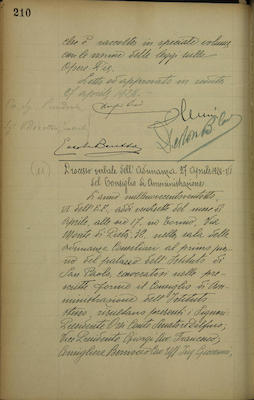 210
che è raccolto in speciale volume
con le norme delle leggi sulle
Opere Pie.
Letto ed approvato in seduta
27 aprile 1928.
(11) Processo verbale dell'Adunanza 27 Aprile 1928-VI
del Consiglio di Amministrazione
L'anno millenovecentoventotto,
VI dell'E.F., addì ventisette del mese di
Aprile, alle ore 17, in Torino, Via
Monte di Pietà, 32, nella sala delle
adunanze Consigliari al primo pia-
no del palazzo dell'Istituto di
San Paolo, convocatosi nelle pre-
scritte forme il Consiglio di Am-
ministrazione dell'Istituto
stesso, risultano presenti i Signori:
Presidente Conte Senatore Delfino;
Vice Presidente Francesco;
Consigliere Ing. Giovanni;